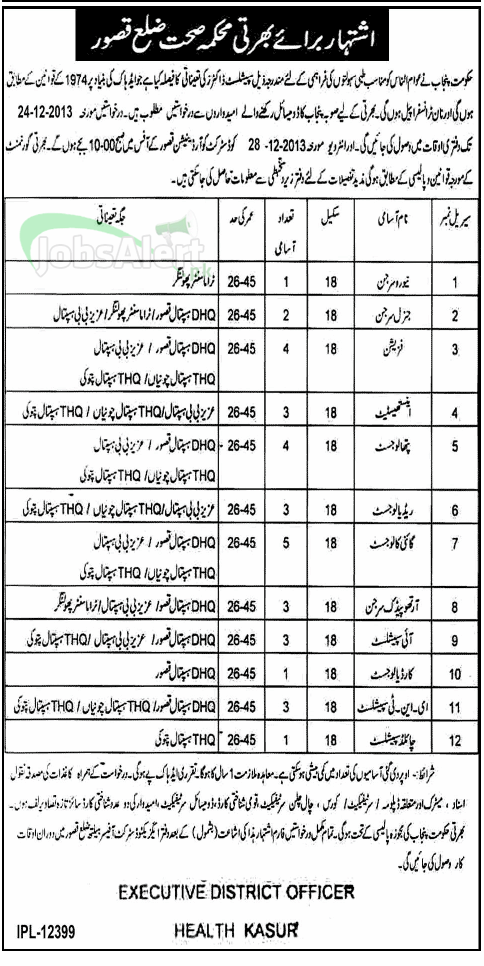 اشتہار برائے بھرتی محکمہ صحت ضلع قصور
حکومت پنجاب نے عوام الناس کو مناسب طبی سہولتوں کی فراہمی کے لئے مندرجہ ذیل سپیشلسٹ ڈاکٹرز کی تعیناتی کا فیصلہ کیا ہے جو ایڈہاک کی بنیاد پر 1974 کے قوانین کے مطابق
ہوں گی اور نان ٹرانسفر ایبل ہوں گی۔ بھرتی کے لئے صوبہ پنجاب کا ڈومیسائل رکھنے والے امیدواروں سے درخواستیں مطلوب ہیں۔ درخواستیں مورخہ 24-12-2013
تک دفتری اوقات میں وصول کی جائیں گی۔ اور انٹرویو مورخہ 28-12-2013 کو ڈسٹرکٹ کوآرڈینیشن قصور کے آفس میں صبح 10-00 بجے ہوں گے۔ بھرتی گورنمنٹ
کے مروجہ قوانین و پالیسی کے مطابق ہوگی مذید تفصیلات کے لئے دفتر زیر دستخطی سے معلومات حاصل کی جاسکتی ہیں۔
سیریل نمبر نام آسامی سکیل تعداد آسامی عمر کی حد جگہ تعیناتی
JobsAlert.pk
1 نیورو سرجن 18 1 26-45 ٹراما سنٹر پھولنگر
2 جنرل سرجن 18 2 26-45 DHQ ہسپتال قصور / ٹراما سنٹر پھولنگر / عزیز بی بی ہسپتال
3 فزیشن 18 4 26-45 DHQ ہسپتال قصور / عزیز بی بی ہسپتال
THQ ہسپتال چونیاں / THQ ہسپتال پتوکی
4 انستھیسٹ 18 3 26-45 عزیز بی بی ہسپتال / THQ ہسپتال چونیاں / THQ ہسپتال پتوکی
5 پتھالوجسٹ 18 4 26-45 DHQ ہسپتال قصور / عزیز بی بی ہسپتال
THQ ہسپتال چونیاں / THQ ہسپتال پتوکی
6 ریڈیالوجسٹ 18 3 26-45 عزیز بی بی ہسپتال / THQ ہسپتال چونیاں / THQ ہسپتال پتوکی
7 گائنی کالوجسٹ 18 5 26-45 DHQ ہسپتال قصور / عزیز بی بی ہسپتال
THQ ہسپتال چونیاں / THQ ہسپتال پتوکی
8 آرتھوپیڈک سرجن 18 3 26-45 DHQ ہسپتال قصور / عزیز بی بی ہسپتال / ٹراما سنٹر پھولنگر
9 آئی سپیشلسٹ 18 3 26-45 DHQ ہسپتال قصور / عزیز بی بی ہسپتال / THQ ہسپتال پتوکی
10 کارڈیالوجسٹ 18 1 26-45 DHQ ہسپتال قصور
11 ای۔این۔ٹی سپیشلسٹ 18 3 26-45 DHQ ہسپتال قصور / THQ ہسپتال چونیاں / THQ ہسپتال پتوکی
12 چائلڈ سپیشلسٹ 18 1 26-45 THQ ہسپتال پتوکی
شرائط:۔ اوپر دی گئی آسامیوں کی تعداد میں کمی بیشی ہو سکتی ہے۔ معاہدہ ملازمت 1 سال کا ہوگا تقرری ایڈہاک پے ہوگی۔ درخواست کے ہمراہ کاغذات کی مصدقہ نقول
اسناد، میٹرک اور متعلقہ ڈپلومہ / سرٹیفکیٹ / کورس، چال چلن سرٹیفکیٹ، قومی شناختی کارڈ، ڈومیسائل سرٹیفکیٹ، امیدوار کی دو عدد شناختی کارڈ سائز تازہ تصاویر لف ہوں۔
بھرتی حکومت پنجاب کی مجوزہ پالیسی کے تحت ہوگی۔ تمام مکمل درخواستیں فارم اشتہار ہذا کی اشاعت (بشمول) کے بعد دفتر ایگزیکٹو ڈسٹرکٹ آفیسر ہیلتھ ضلع قصور میں دوران اوقات
کار وصول کی جائیں گی۔
EXECUTIVE DISTRICT OFFICER
HEALTH KASUR
IPL-12399